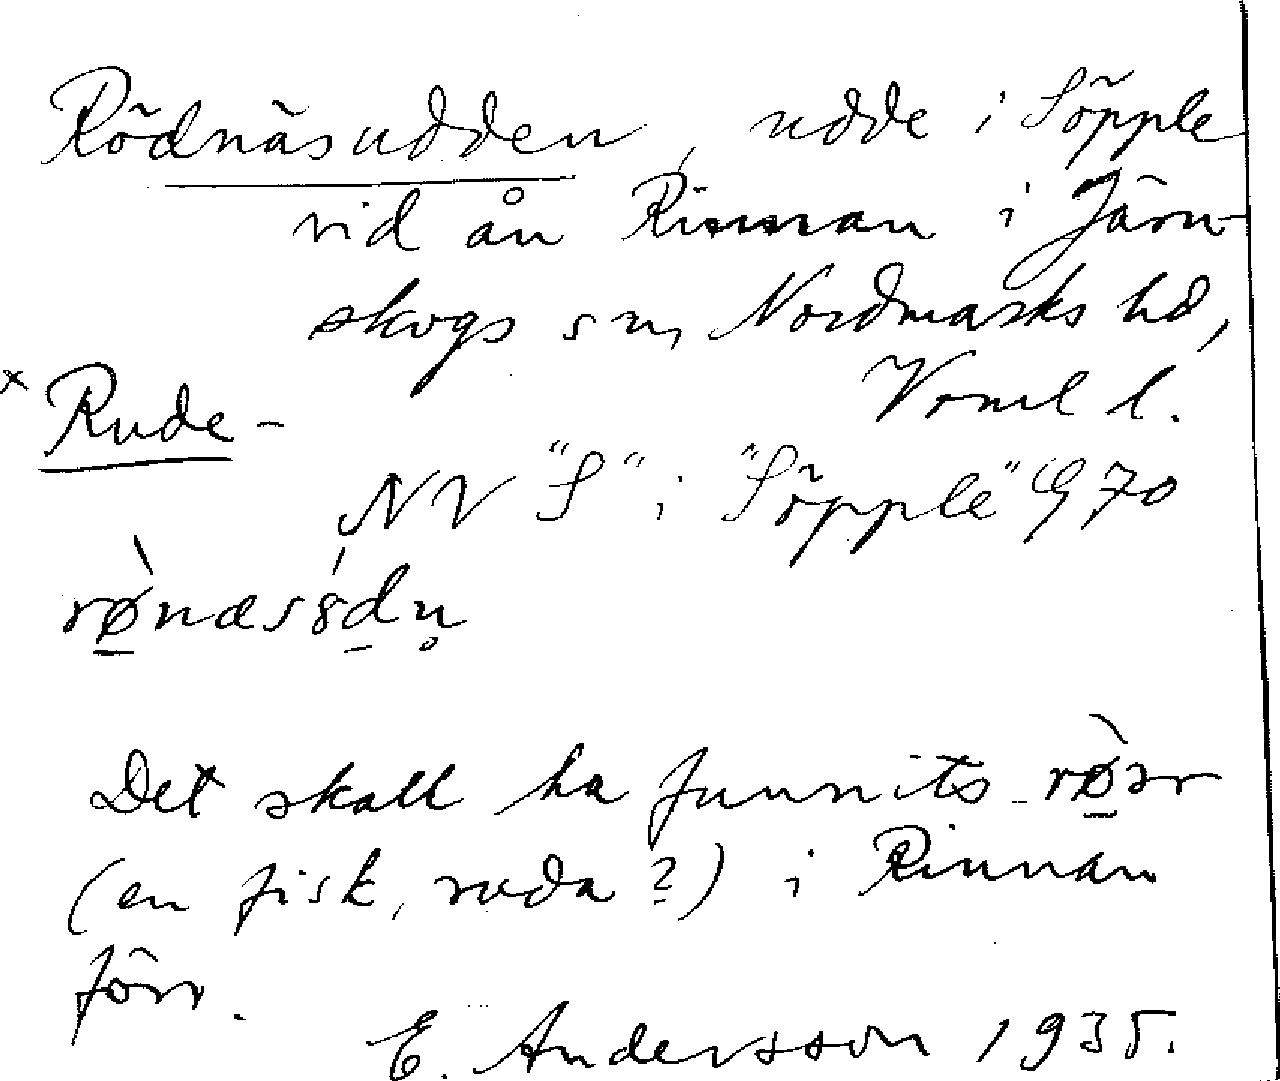 Rödnäsudden, udde i Söpple
vid ån Rinnan i Järn-
skogs sn, Nordmarks hd,
Vrml l.
× Rude-
NV "S" i "Söpple" G 70
rø̀næsȣ́dn̥
Det skall ha funnits rø̀ər
(en fisk, ruda?) i Rinnan
förr.
E. Andersson 1935.